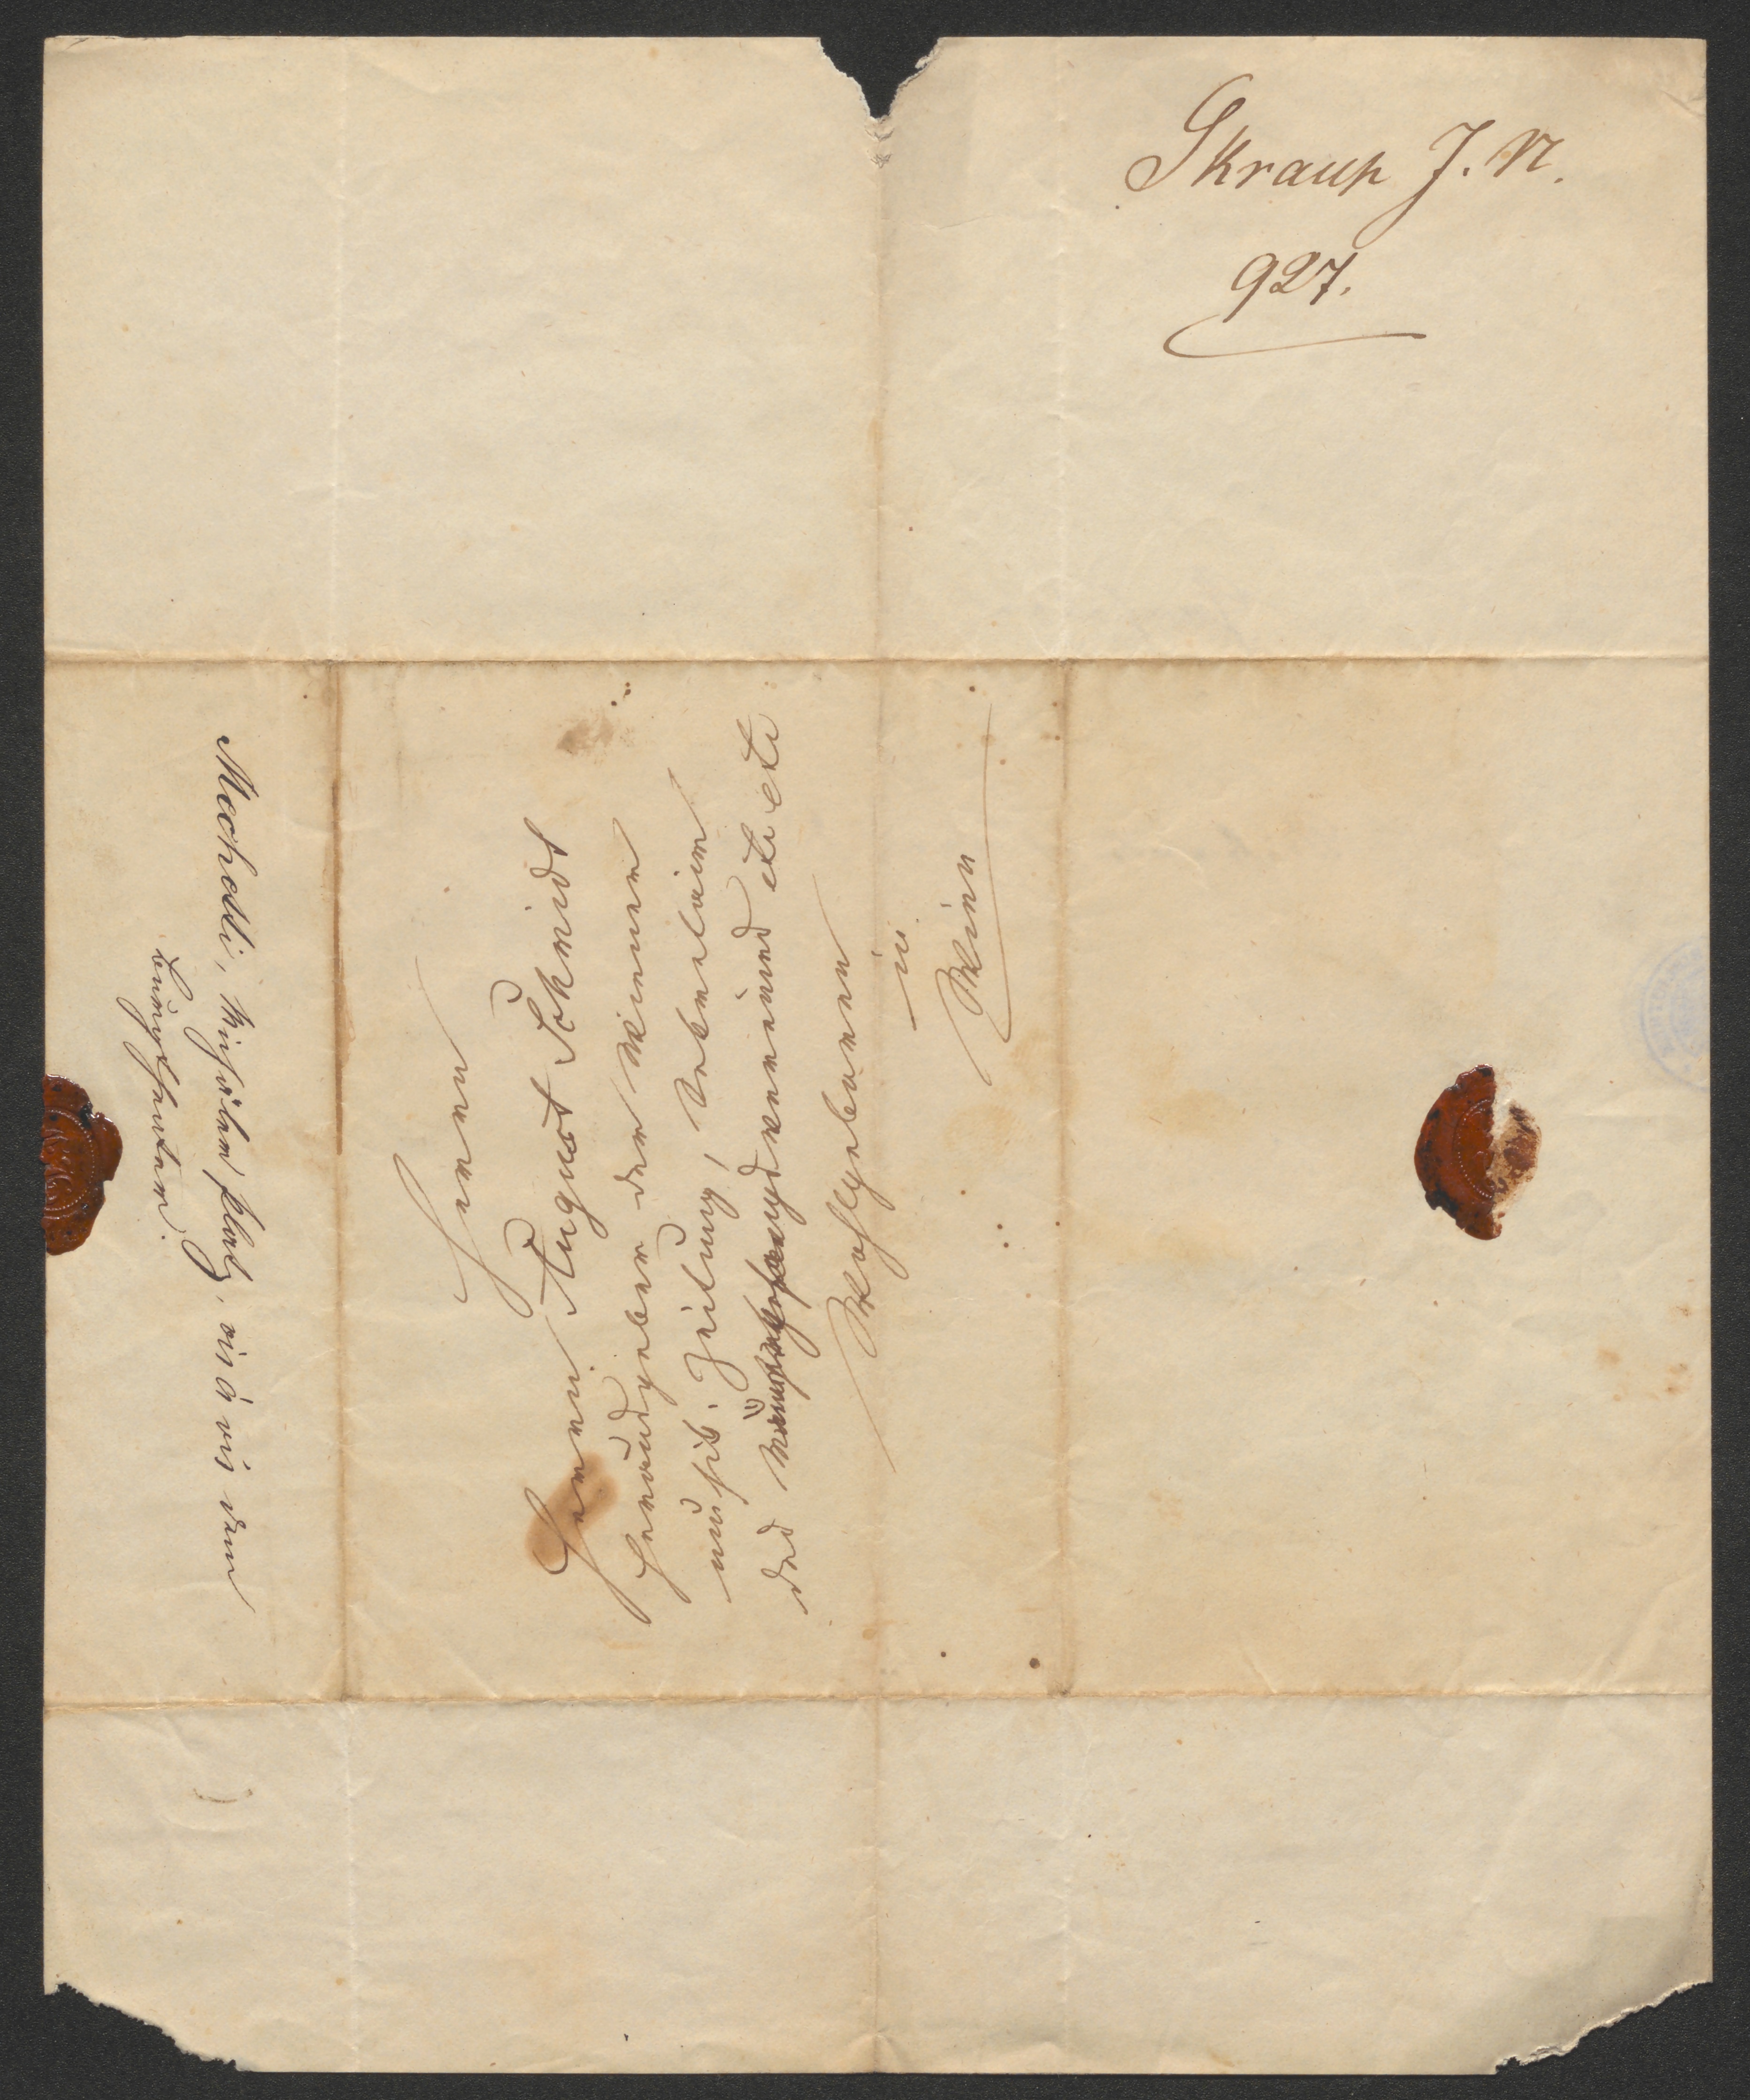 Skraup J. N.
927.
Herrn
Herrn August Schmidt
Herausgeber der Wiener
musik. Zeitung,
des Männergesangvereines etc etc
Wohlgeboren
in
Wien
Mechetti, Michaeler platz, vis à vis dem
Burgtheater.